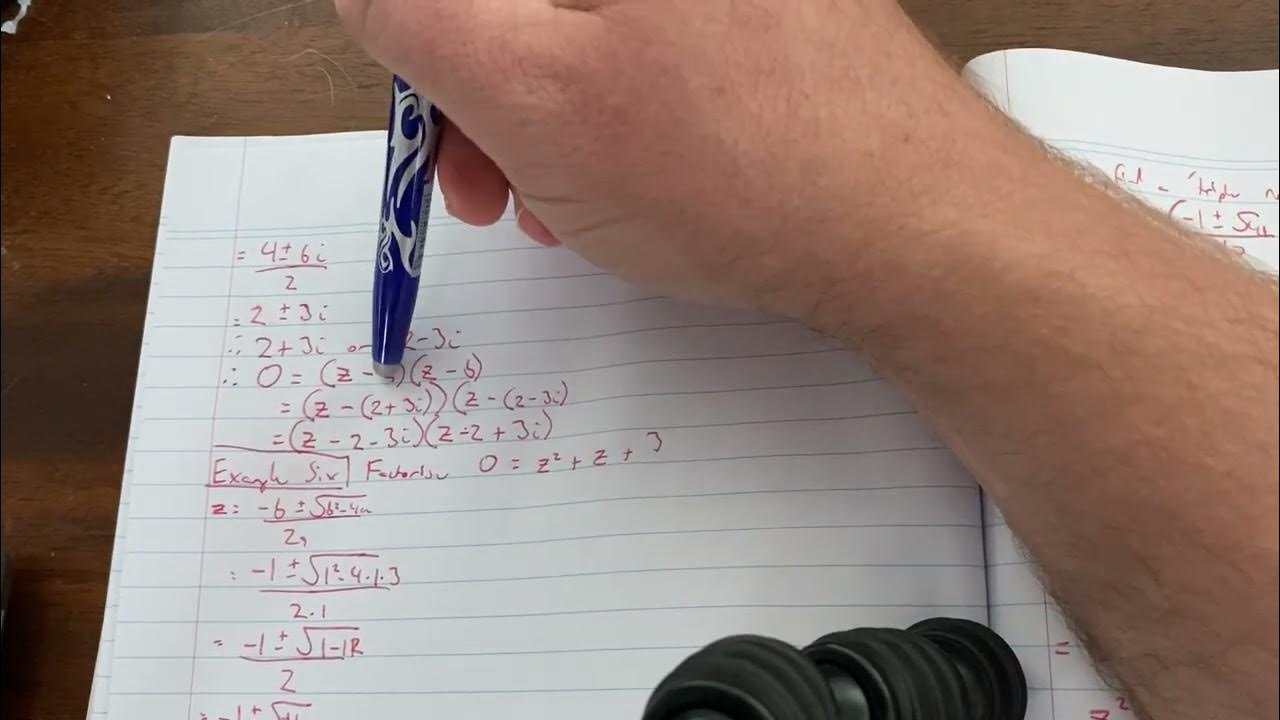 = 4 ± 6i
2
= 2 ± 3i
∴ 2 + 3i or 2 - 3i
∴ 0 = (z - )(z - b)
= (z - (2 + 3i))(z - (2 - 3i)
= (z - 2 - 3i)(z - 2 + 3i)
Example Six Factorise 0 = z² + z + 3
z = -b ± √b² - 4ac
2a
= -1 ± √1² - 4.1.3
2.1
= -1 ± √1 - 12
2
= -1 ± √-11
find a
(-1 ±
=
z²